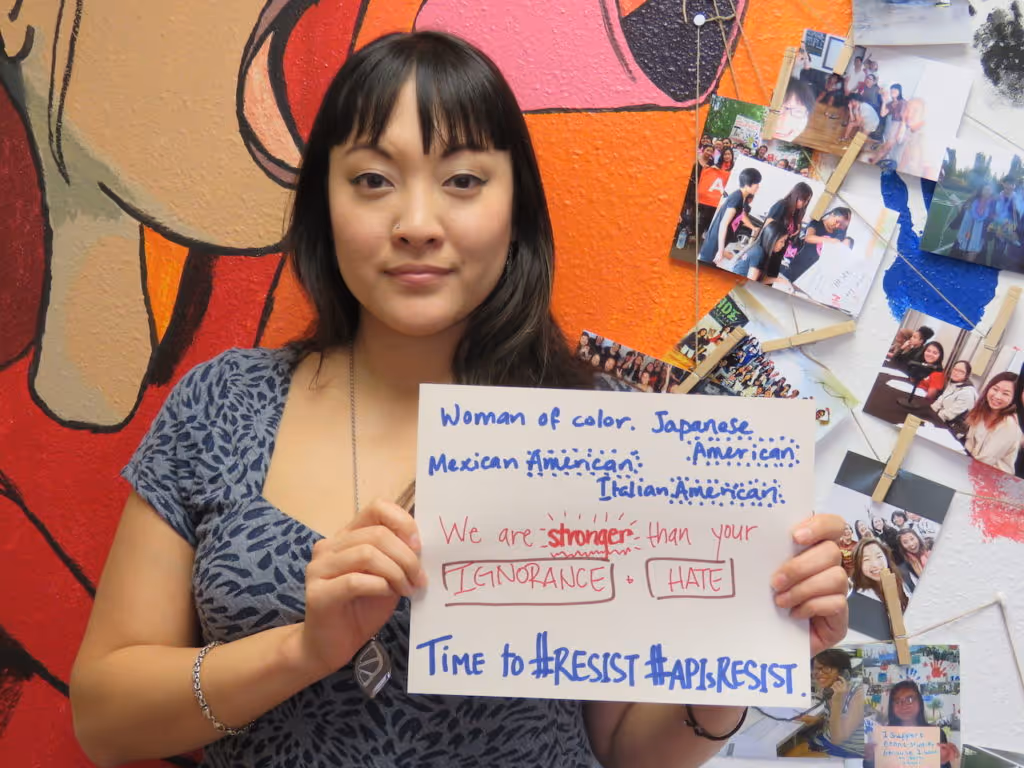 Woman of color. Japanese
American.
Mexican American.
Italian American.
We are stronger than your
IGNORANCE + HATE
Time to #RESIST #APIsRESIST.
I support
ethnic studies
because I want